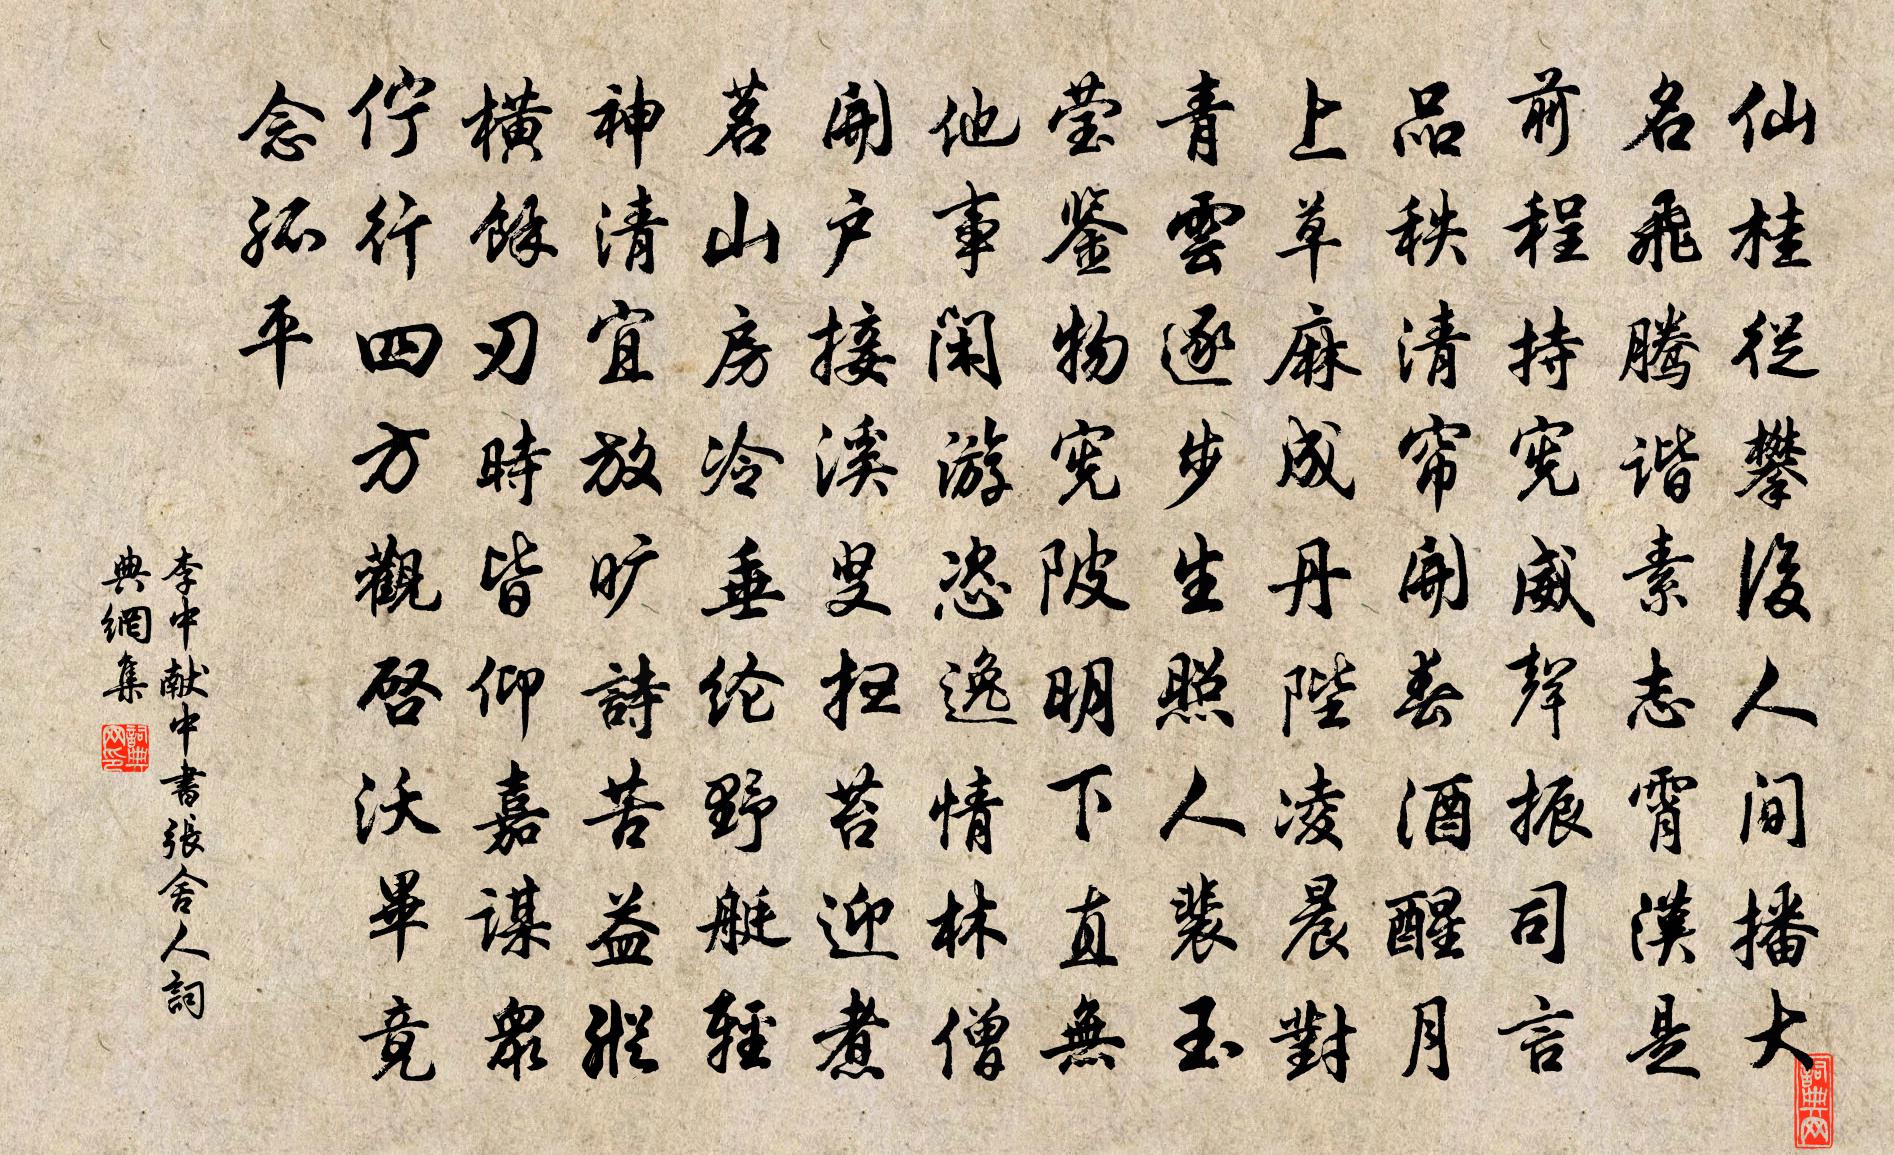 仙桂從攀後人間播大
名飛騰谐素志霄漢是
前程持宪威聲振司言
品秩清帘開春酒醒月
上草麻成丹陛凌晨對
青雲逐步生照人裴玉
莹鉴物宪陂明下直無
他事闲游恣逸情林僧
開户接溪叟扫苔迎煮
茗山房冷垂纶野艇輕
神清宜放旷詩苦益縱
横餘刃時皆仰嘉謀眾
佇行四方觀啓沃畢竟
念孤平
李中献中書張舍人詞
典網集
詞典网印
詞典网